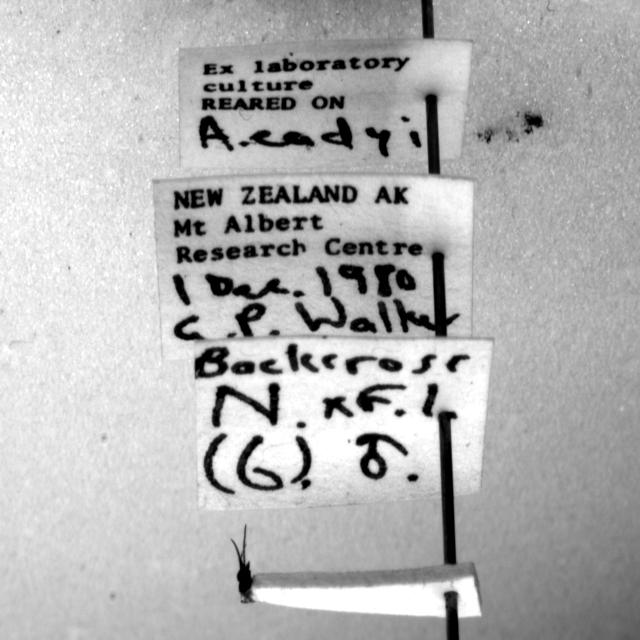 Ex laboratory
culture
REARED ON
A. eadyi
NEW ZEALAND AK
Mt Albert
Research Centre
1 Dec. 1980
C. P. Walker
Backcross
N. x F. 1.
(G). ♂.